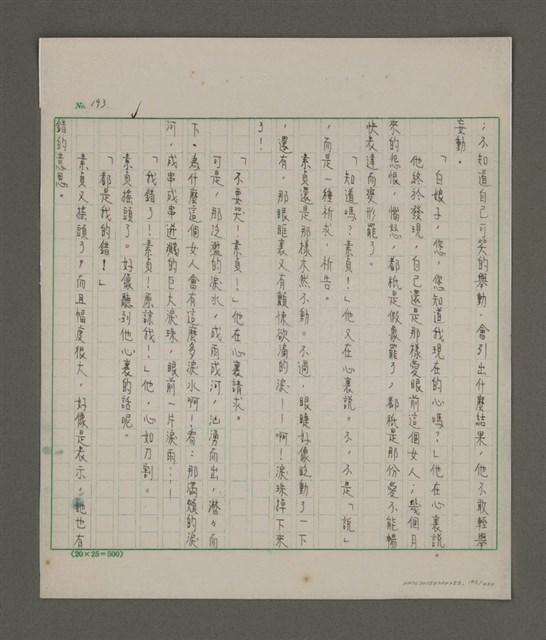 No. 193.
；不知道自己可笑的舉動，會引出什麼結果，他不敢輕舉
妄動。
「白娘子，您，您知道我現在的心嗎？」他在心裏說。
他終於發現，自己還是那樣愛眼前這個女人；幾個月
來的怨恨，惱怒，都祇是假象罷了，都祇是那份愛不能暢
快表達而變形罷了。
「知道嗎？素貞！」他又在心裏說。不，不是「說」
，而是一種祈求，祈告。
素貞還是那樣木然不動。不過，眼睫好像眨動了一下
，還有，那眼眶裏又有顫悚欲滴的淚——啊！淚珠掉下來
了！
「不要哭！素貞！」他在心裏請求。
可是，那泛濫的淚水，成兩成河，汹湧而出，潸々而
下。為什麼這個女人會有這麼多淚水啊！看：那滿頰的淚
河，成串成串迸濺的巨大淚珠，眼前一片淚雨……！
「我錯了！素貞！原諒我！」他，心如刀割。
素貞搖頭了。好像聽到他心裏的話呢。
「都是我的錯！」
素貞又搖頭了，而且幅度很大，好像是表示，她也有
錯的意思。
(20×25=500)